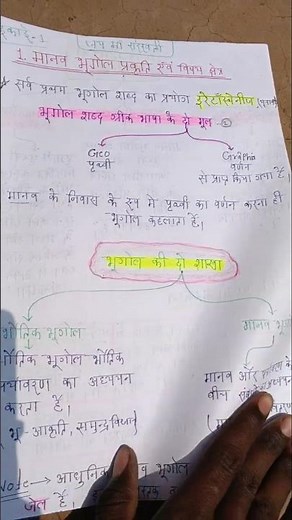 इकाई-1
जय माँ सरस्वती
1. मानव भूगोल प्रकृति एवं विषय क्षेत्र
सर्व प्रथम भूगोल शब्द का प्रयोग इरेटॉस्थेनीज
भूगोल शब्द ग्रीक भाषा के दो मूल
Geo Grapho
पृथ्वी वर्णन
से प्राप्त किया गया है।
मानव के निवास के रूप में पृथ्वी का वर्णन करना ही
भूगोल कहलाता है।
भूगोल की दो शाखा
भौतिक भूगोल मानव
भौतिक भूगोल भौतिक
पर्यावरण का अध्ययन
करता है।
मानव और
बीच
भू-आकृति, समुन्द्र विज्ञान)
Note → आधुनिक भूगोल
है।